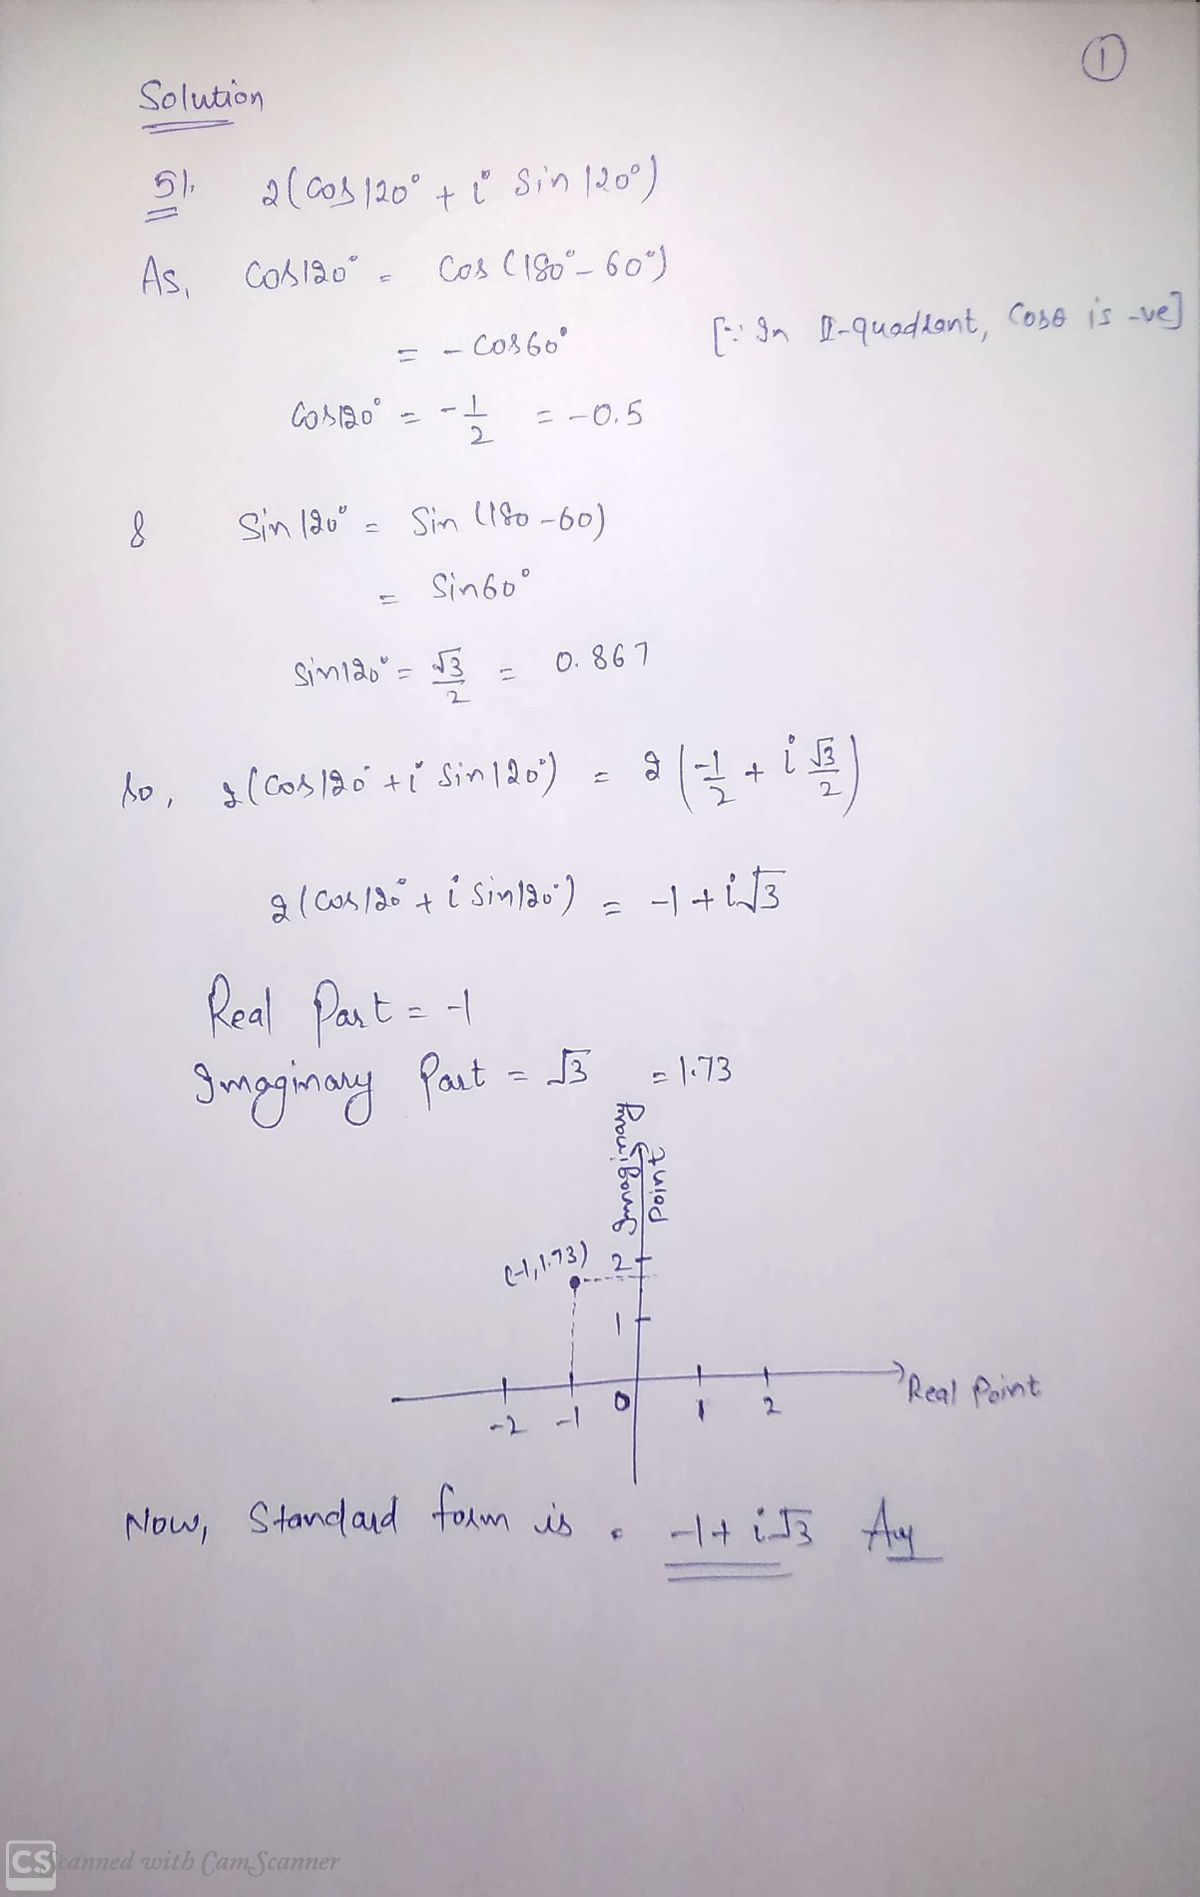 1
Solution
51. 2(cos120° + i sin 120°)
As, cos120° = cos (180°-60°)
= - cos60° [∵ In II-quadrant, cosθ is -ve]
cos120° = -1/2 = -0.5
& sin 120° = sin (180-60)
= sin60°
sin120° = √3/2 = 0.867
So, 2(cos120° + i sin120°) = 2(-1/2 + i √3/2)
2(cos120° + i sin120°) = -1 + i√3
Real Part = -1
Imaginary Part = √3 = 1.73
Imaginary
Point
(-1,1.73) 2
1
-2 -1 0 1 2 Real Point
Now, Standard form is -1 + i√3 Ans
CS Scanned with CamScanner